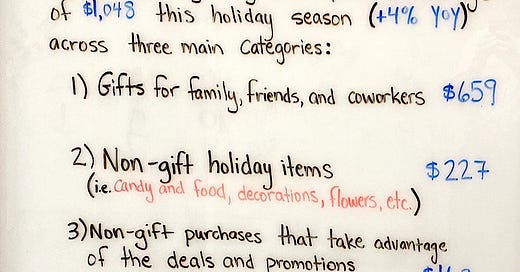 of $1,048 this holiday season (+4% YoY)
across three main categories:
1) Gifts for family, friends, and coworkers $659
2) Non-gift holiday items $227
(i.e. candy and food, decorations, flowers, etc.)
3) Non-gift purchases that take advantage
of the deals and promotions